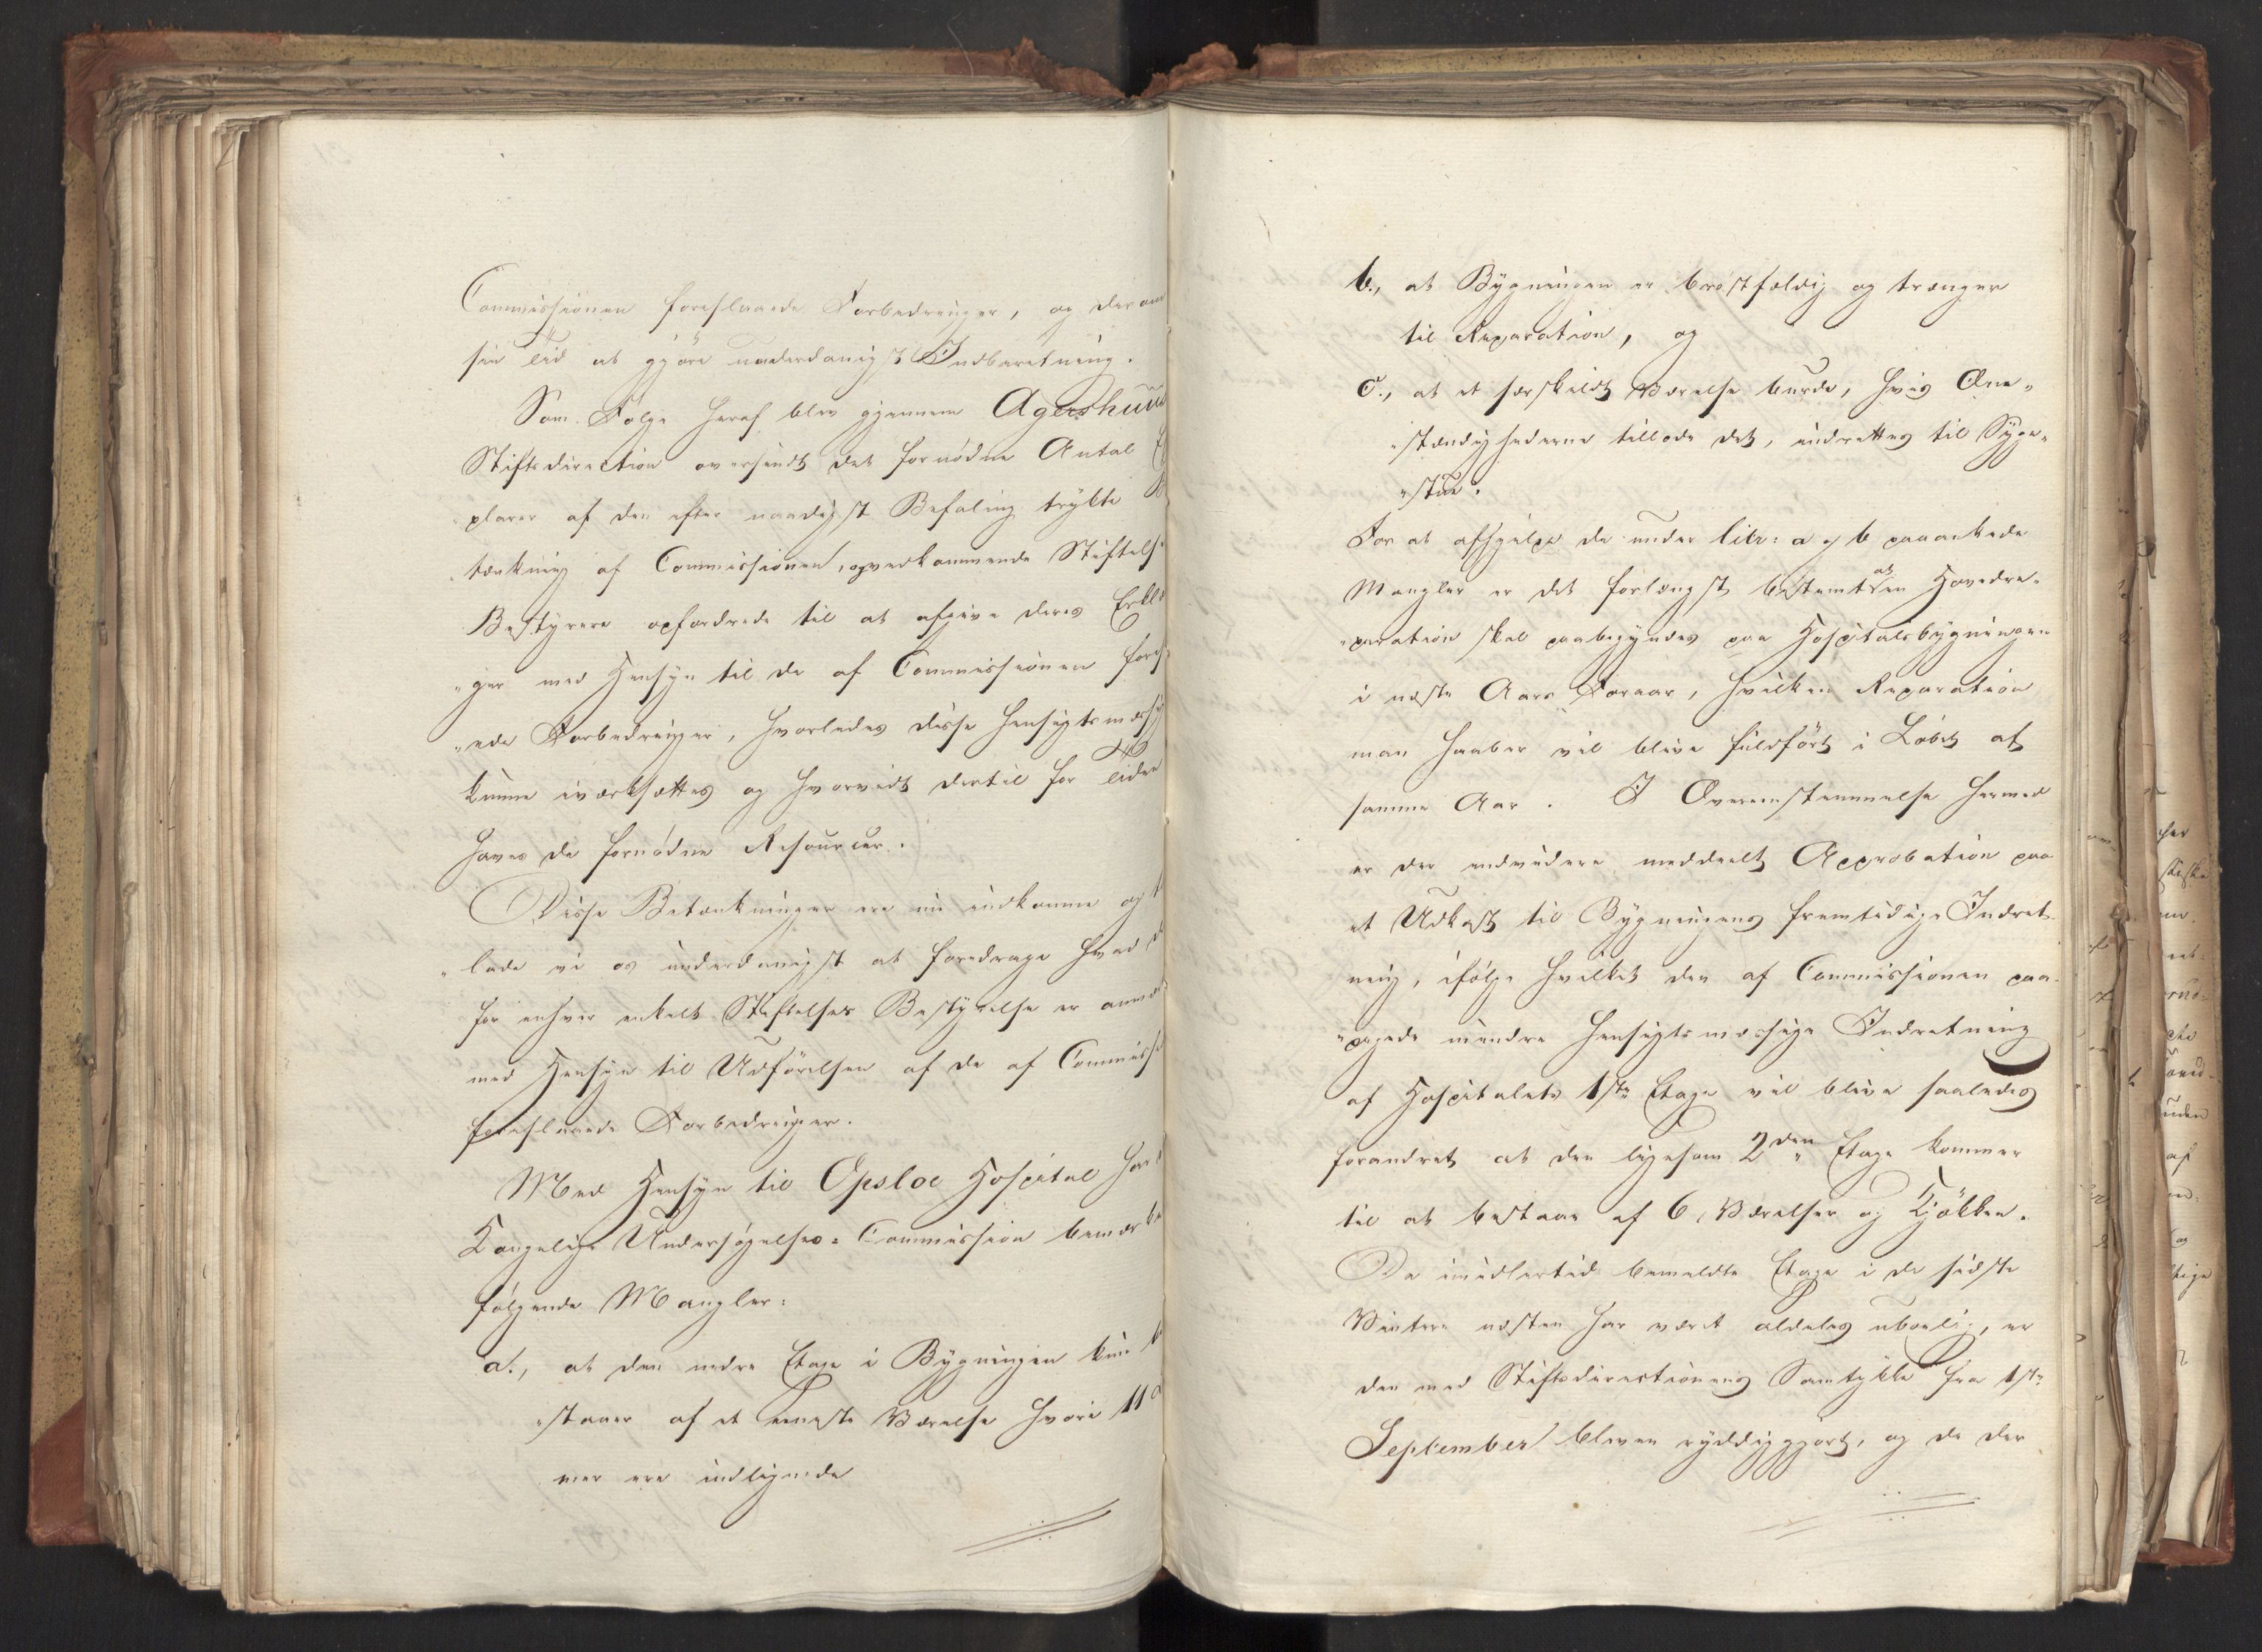 Commissionen foreslaaede Forbedringer, og derom
sin Tid at gjöre underdanigst Indberetning.
Som Følge heraf blev gjennem Agershuus
Stiftsdirection oversendt det fornödne Antal
plarer af den efter naadigst Befaling trykte
tænkning af Commissionen, og vedkommende Stiftels
Bestyrere opfordrede til at afgive deres Erklæ
"ger med Hensyn til de af Commissionen fores
"ede Forbedringer, hvorledes disse hensigtsmæssig
kunne iværksættes og hvorvidt dertil for Tiden
haves de fornödne Resourcer.
Disse Betænkninger ere nu indkomne og
"lade vi os underdanigst at foredrage hvad
for enhver enkelt Stiftelses Bestyrelse er anmær
med Hensyn til Udförelsen af de af Commissi
foreslaaede Forbedringer.
Med Hensyn til Opsloe Hospital har
Kongelige Undersøgelses-Commission bemærke
følgende Mangler:
a., at den nedre Etage i Bygningen kun
"staaer af et eeneste Værelse hvori 11
mer ere indlignede
b., at Bygningen er bröstfældig og trænger
til Reparation, og
c., at et særskilt Værelse burde, hvis Om-
"stændighederne tillode det, indrettes til Syge-
"stue.
For at afhjelpe de under litr: a og b paaankede
Mangler er det forlængst bestemt at en Hovedre-
"paration skal paabegyndes paa Hospitalsbygningen
i næste Aars Foraar, hvilken Reparation
man haaber vil blive fuldfört i Löbet af
samme Aar. I Overeensstemmelse hermed
er der endvidere meddeelt Approbation paa
et Udkast til Bygningens fremtidige Indret-
ning, ifölge hvilket den af Commissionen paa-
"pegede mindre hensigtsmæssige Indretning
af Hospitalets 1ste Etage vil blive saaledes
forandret at den ligesom 2den Etage kommer
til at bestaae af 6 Værelser og Kjökken.
Da imidlertid bemeldte Etage i de sidste
Vintere næsten har været aldeles ubeelig, er
den med Stiftsdirectionens Samtykke fra 1ste
September bleven ryddiggjort, og de der